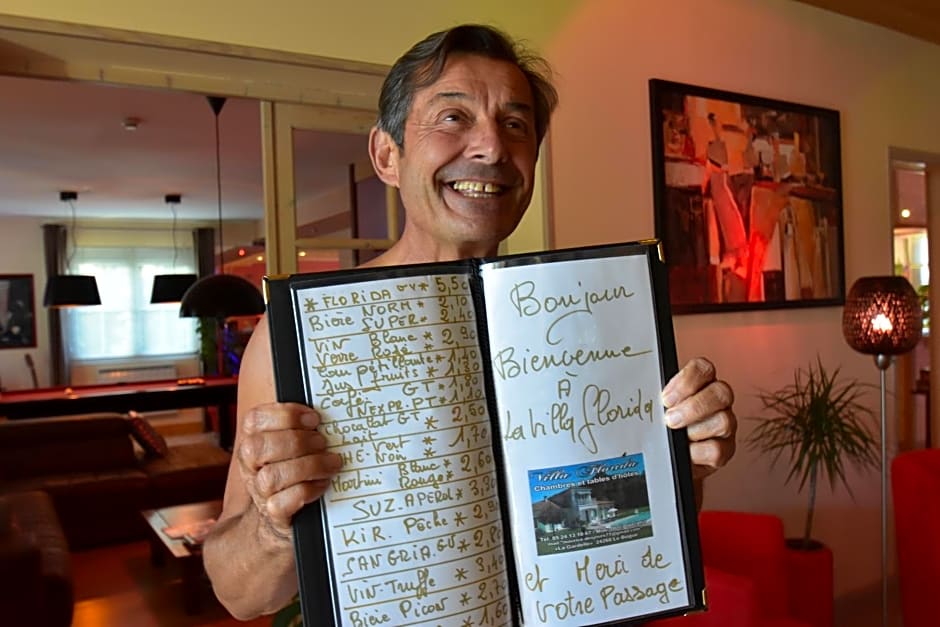 * FLORIDA GT * 5,50
Bière NORM * 2,10
SUPER * 2,40
VIN Blanc * 2,90
Verre Rosé
Eau pétillante * 1,40
Jus fruits * 1,30
Café GT * 1,80
EXP.PT * 1,10
Chocolat GT * 2,50
Lait *
THÉ-Vert * 1,70
Noir *
Martini Blanc * 2,60
Rouge *
SUZ.APEROL * 3,30
KIR. Pêche *
SANGRIA.GT *
VIN-Truffe * 3,40
Bière Picon *
1,60
Bonjour
Bienvenue
À
La Villa florida
Villa Florida
Chambres et tables d'hôtes
Tél. 05 24 13 10 67
24260 Le Bugue
et Merci de
Votre Passage